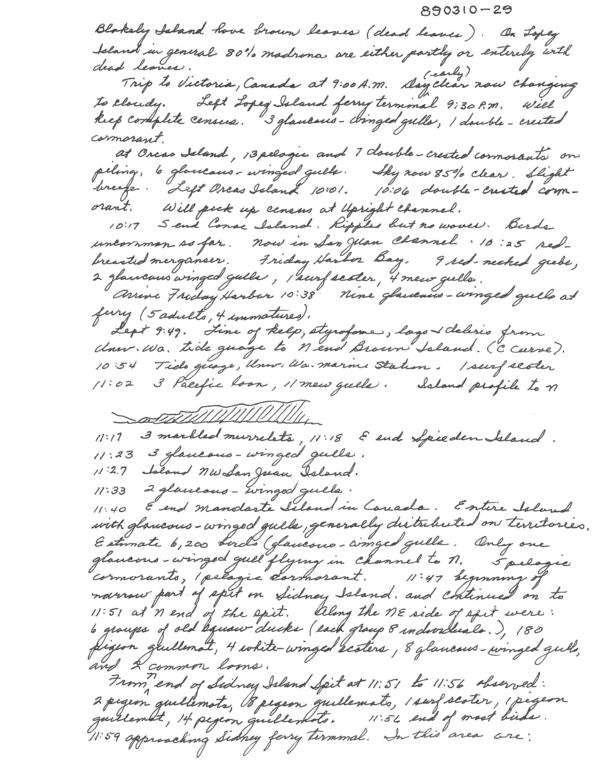 890310-29
Blakely Island have brown leaves (dead leaves). On Lopez
Island in general 80% madrona are either partly or entirely with
dead leaves.
Trip to Victoria, Canada at 9:00 A.M. Day (early) clear now changing
to cloudy. Left Lopez Island ferry terminal 9:30 P.M. Will
keep complete census. 3 glaucous-winged gulls, 1 double-crested
cormorant.
At Orcas Island, 13 pelagic and 7 double-crested cormorants on
piling, 6 glaucous-winged gulls. Sky now 85% clear. Slight
breeze. Left Orcas Island 10:01. 10:06 double-crested corm-
orant. Will pick up census at Upright Channel.
10:17 S end Canoe Island. Ripples but no waves. Birds
uncommon as far. Now in San Juan Channel. 10:25 red-
breasted merganser. Friday Harbor Bay. 9 red-necked grebe,
2 glaucous winged gulls, 1 surf scoter, 4 mew gulls.
Arrive Friday Harbor 10:38 Nine glaucous-winged gulls at
ferry (5 adults, 4 immatures).
Left 9:49. Line of kelp, styrofome, logs & debris from
Univ. Wa. tide guage to N end Brown Island. (C Curve).
10:54 Tide guage, Univ. Wa. marine Station. 1 surf scoter
11:02 3 Pacific loon, 11 mew gulls. Island profile to N
11:17 3 marbled murrelets, 11:18 E end Spieden Island.
11:23 3 glaucous-winged gulls.
11:27 Island NW San Juan Island.
11:33 2 glaucous-winged gulls.
11:40 E end Mandarte Island in Canada. Entire Island
with glaucous-winged gulls, generally distributed on territories.
Estimate 6,200 birds (glaucous-winged gulls. Only one
glaucous-winged gull flying in channel to N. 5 pelagic
cormorants, 1 pelagic cormorant. 11:47 beginning of
narrow part of spit on Sidney Island. and continued on to
11:51 at N end of the spit. Along the NE side of spit were:
6 groups of old squaw ducks (each group 8 individuals.), 180
pigeon guillemot, 4 white-winged scoters, 8 glaucous-winged gulls,
and 2 common loons.
From N end of Sidney Island Spit at 11:51 to 11:56 observed:
2 pigeon guillemots, 8 pigeon guillemots, 1 surf scoter, 1 pigeon
guillemot, 14 pigeon guillemots. 11:56 end of most birds.
11:59 approaching Sidney ferry terminal. In this area are: